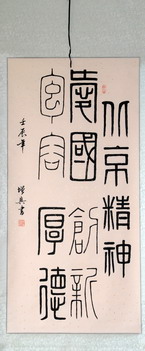 北京精神
愛國創新
包容厚德
壬辰年
書